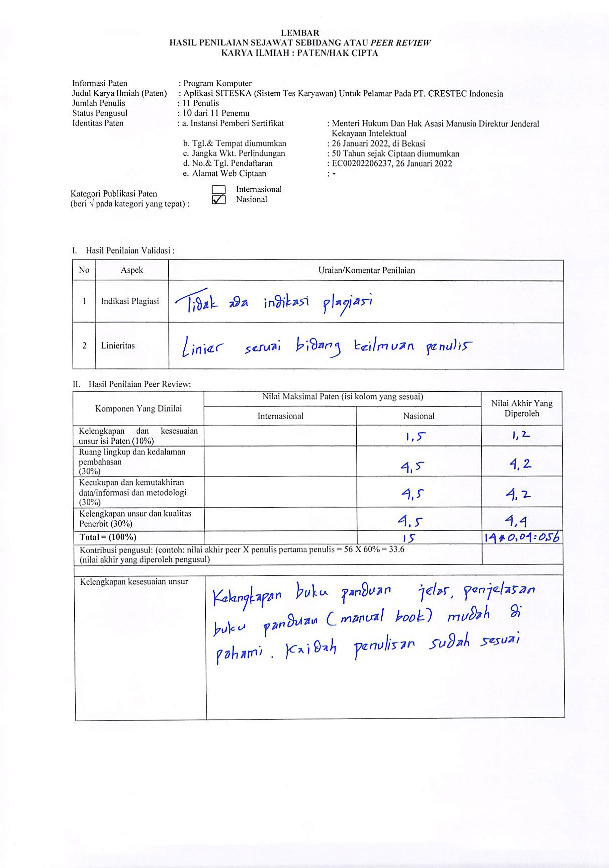 LEMBAR
HASIL PENILAIAN SEJAWAT SEBIDANG ATAU PEER REVIEW
KARYA ILMIAH : PATEN/HAK CIPTA
Informasi Paten : Program Komputer
Judul Karya Ilmiah (Paten) : Aplikasi SITESKA (Sistem Tes Karyawan) Untuk Pelamar Pada PT. CRESTEC Indonesia
Jumlah Penulis : 11 Penulis
Status Pengusul : 10 dari 11 Penemu
Identitas Paten : a. Instansi Pemberi Sertifikat : Menteri Hukum Dan Hak Asasi Manusia Direktur Jenderal
Kekayaan Intelektual
b. Tgl.& Tempat diumumkan : 26 Januari 2022, di Bekasi
c. Jangka Wkt. Perlindungan : 50 Tahun sejak Ciptaan diumumkan
d. No.& Tgl. Pendaftaran : EC00202206237, 26 Januari 2022
e. Alamat Web Ciptaan : -
Kategori Publikasi Paten Internasional
(beri √ pada kategori yang tepat) : Nasional
I. Hasil Penilaian Validasi :
No Aspek Uraian/Komentar Penilaian
1 Indikasi Plagiasi Tidak ada indikasi plagiasi
2 Linieritas Linier sesuai bidang keilmuan penulis
II. Hasil Penilaian Peer Review:
Komponen Yang Dinilai Nilai Maksimal Paten (isi kolom yang sesuai) Nilai Akhir Yang Diperoleh
Internasional Nasional
Kelengkapan dan kesesuaian unsur isi Paten (10%) 1,5 1,2
Ruang lingkup dan kedalaman pembahasan (30%) 4,5 4,2
Kecukupan dan kemutakhiran data/informasi dan metodologi (30%) 4,5 4,2
Kelengkapan unsur dan kualitas Penerbit (30%) 4,5 4,4
Total = (100%) 15 14*0,04=0,56
Kontribusi pengusul: (contoh: nilai akhir peer X penulis pertama penulis = 56 X 60% = 33.6
(nilai akhir yang diperoleh pengusul)
Kelengkapan kesesuaian unsur Kelengkapan buku panduan jelas, penjelasan
buku panduan (manual book) mudah di
pahami. Kaidah penulisan sudah sesuai